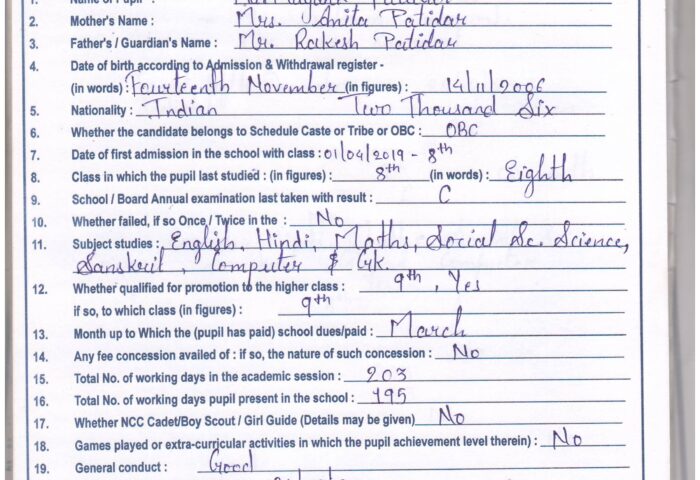 1. Name of Pupil :
2. Mother's Name : Mrs. Anita Patidar
3. Father's / Guardian's Name : Mr. Rakesh Patidar
4. Date of birth according to Admission & Withdrawal register -
(in words) : Fourteenth November (in figures) : 14/11/2006
5. Nationality : Indian Two Thousand Six
6. Whether the candidate belongs to Schedule Caste or Tribe or OBC : OBC
7. Date of first admission in the school with class : 01/04/2019 - 8th
8. Class in which the pupil last studied : (in figures) : 8th (in words) : Eighth
9. School / Board Annual examination last taken with result : C
10. Whether failed, if so Once / Twice in the : No
11. Subject studies : English, Hindi, Maths, Social Sc. Science,
Sanskrit, Computer & Gk.
12. Whether qualified for promotion to the higher class : 9th, Yes
if so, to which class (in figures) : 9th
13. Month up to Which the (pupil has paid) school dues/paid : March
14. Any fee concession availed of : if so, the nature of such concession : No
15. Total No. of working days in the academic session : 203
16. Total No. of working days pupil present in the school : 195
17. Whether NCC Cadet/Boy Scout / Girl Guide (Details may be given) No
18. Games played or extra-curricular activities in which the pupil achievement level therein) : No
19. General conduct : Good